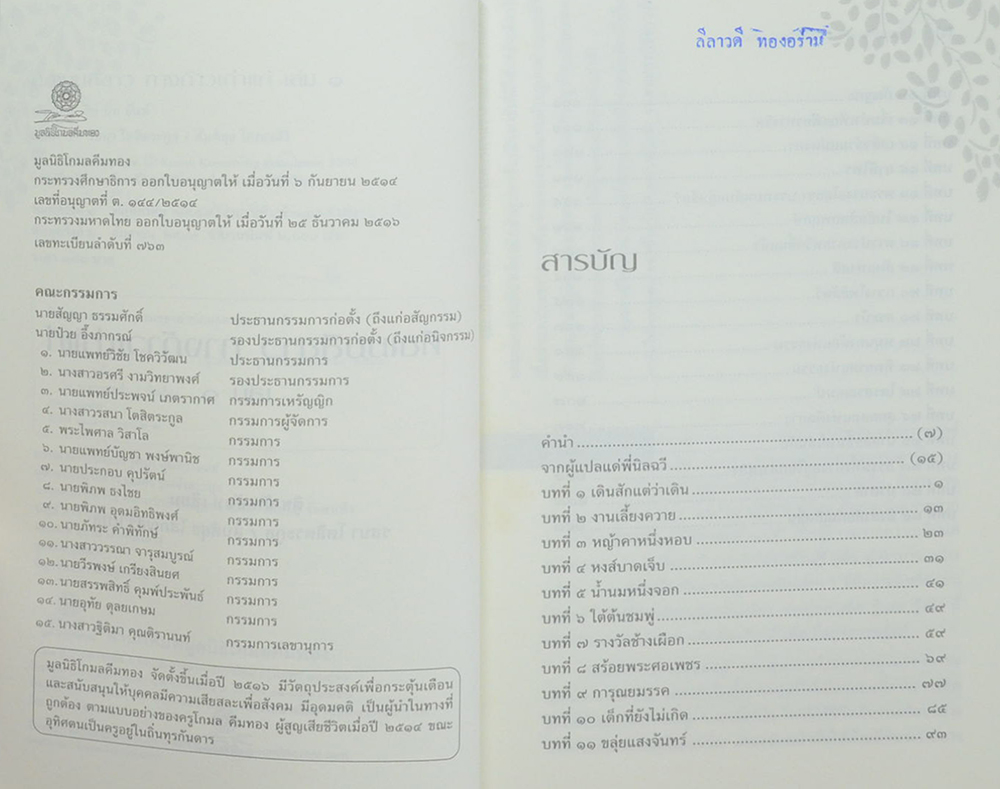 มูลนิธิโกมลคีมทอง
มูลนิธิโกมลคีมทอง
กระทรวงศึกษาธิการ ออกใบอนุญาตให้ เมื่อวันที่ ๖ กันยายน ๒๕๑๔
เลขที่อนุญาตที่ ต. ๑๔๔/๒๕๑๔
กระทรวงมหาดไทย ออกใบอนุญาตให้ เมื่อวันที่ ๒๕ ธันวาคม ๒๕๑๖
เลขทะเบียนลำดับที่ ๗๖๓
คณะกรรมการ
นายสัญญา ธรรมศักดิ์ ประธานกรรมการก่อตั้ง (ถึงแก่อสัญกรรม)
นายป๋วย อึ๊งภากรณ์ รองประธานกรรมการก่อตั้ง (ถึงแก่อนิจกรรม)
๑. นายแพทย์วิชัย โชควิวัฒน ประธานกรรมการ
๒. นางสาวอรศรี งามวิทยาพงศ์ รองประธานกรรมการ
๓. นายแพทย์ประพจน์ เภตรากาศ กรรมการเหรัญญิก
๔. นางสาวรสนา โตสิตระกูล กรรมการผู้จัดการ
๕. พระไพศาล วิสาโล กรรมการ
๖. นายแพทย์บัญชา พงษ์พานิช กรรมการ
๗. นายประกอบ คุปรัตน์ กรรมการ
๘. นายพิภพ ธงไชย กรรมการ
๙. นายพิภพ อุดมอิทธิพงศ์ กรรมการ
๑๐. นายภัทระ คำพิทักษ์ กรรมการ
๑๑. นางสาววรรณา จารุสมบูรณ์ กรรมการ
๑๒. นายวีรพงษ์ เกรียงสินยศ กรรมการ
๑๓. นายสรรพสิทธิ์ คุมพ์ประพันธ์ กรรมการ
๑๔. นายอุทัย ดุลยเกษม กรรมการ
๑๕. นางสาวฐิติมา คุณติรานนท์ กรรมการเลขานุการ
มูลนิธิโกมลคีมทอง จัดตั้งขึ้นเมื่อปี ๒๕๑๖ มีวัตถุประสงค์เพื่อกระตุ้นเตือน
และสนับสนุนให้บุคคลมีความเสียสละเพื่อสังคม มีอุดมคติ เป็นผู้นำในทางที่
ถูกต้อง ตามแบบอย่างของครูโกมล คีมทอง ผู้สูญเสียชีวิตเมื่อปี ๒๕๑๔ ขณะ
อุทิศตนเป็นครูอยู่ในถิ่นทุรกันดาร
ลีลาวดี ทองอร่าม
สารบัญ
คำนำ ........ (๗)
จากผู้แปลแด่พี่นิลฉวี ........ (๑๕)
บทที่ ๑ เดินสักแต่ว่าเดิน ........ ๑
บทที่ ๒ งานเลี้ยงควาย ........ ๑๓
บทที่ ๓ หญ้าคาหนึ่งหอบ ........ ๒๓
บทที่ ๔ หงส์บาดเจ็บ ........ ๓๑
บทที่ ๕ น้ำนมหนึ่งจอก ........ ๔๑
บทที่ ๖ ใต้ต้นชมพู่ ........ ๔๙
บทที่ ๗ รางวัลช้างเผือก ........ ๕๙
บทที่ ๘ สร้อยพระศอเพชร ........ ๖๙
บทที่ ๙ การุณยมรรค ........ ๗๗
บทที่ ๑๐ เด็กที่ยังไม่เกิด ........ ๘๕
บทที่ ๑๑ ขลุ่ยแสงจันทร์ ........ ๙๓